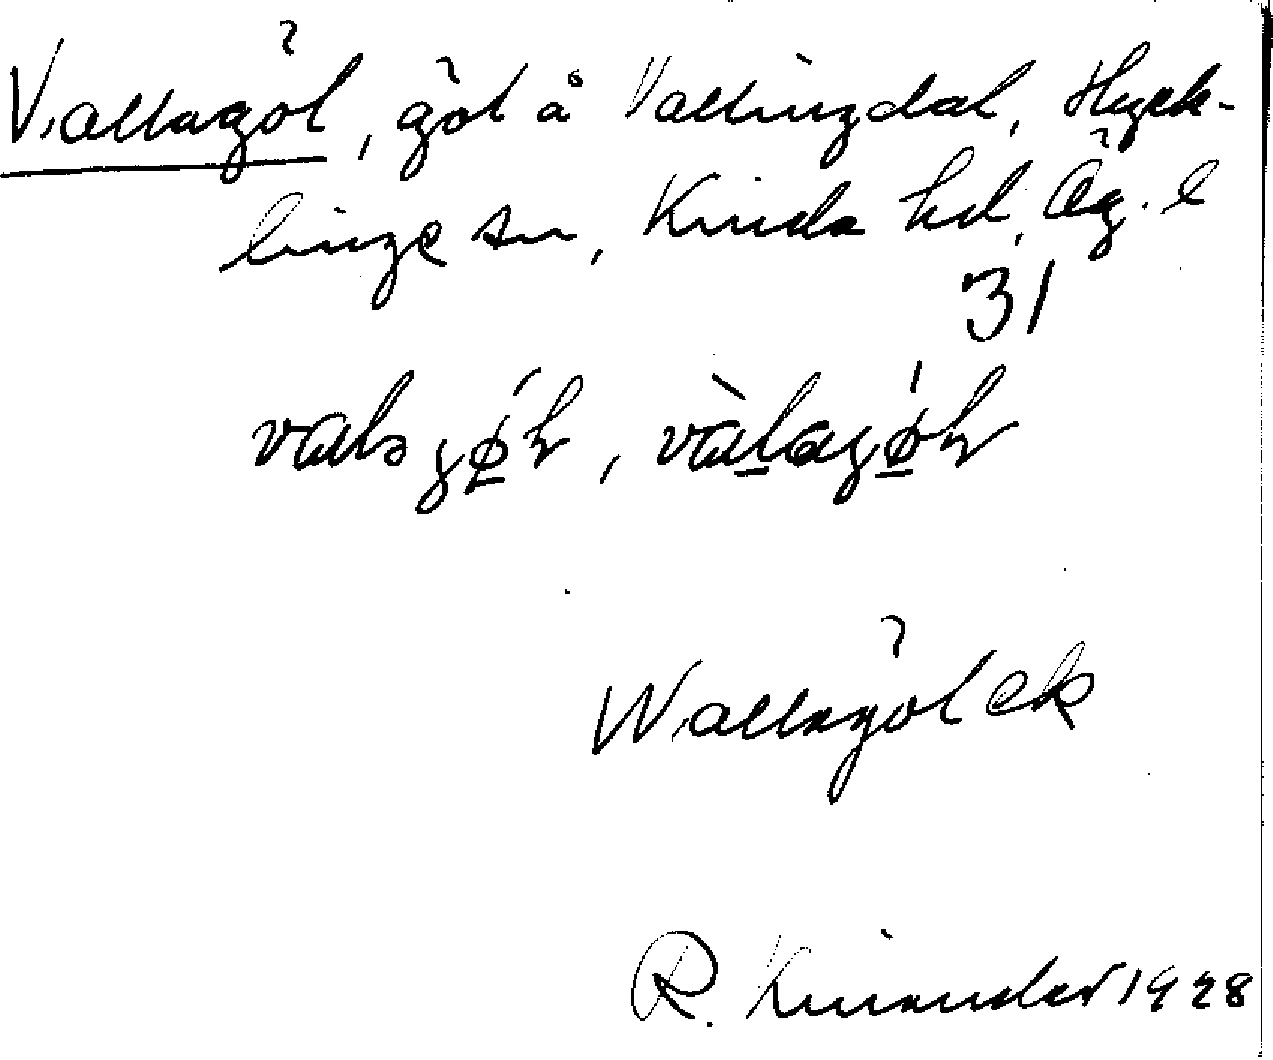 Vallagöl, göl å Vallingdal, Hyck-
linge sn, Kinda hd, Ög. l
31
Wallagöl ek
R. Kinander 1928